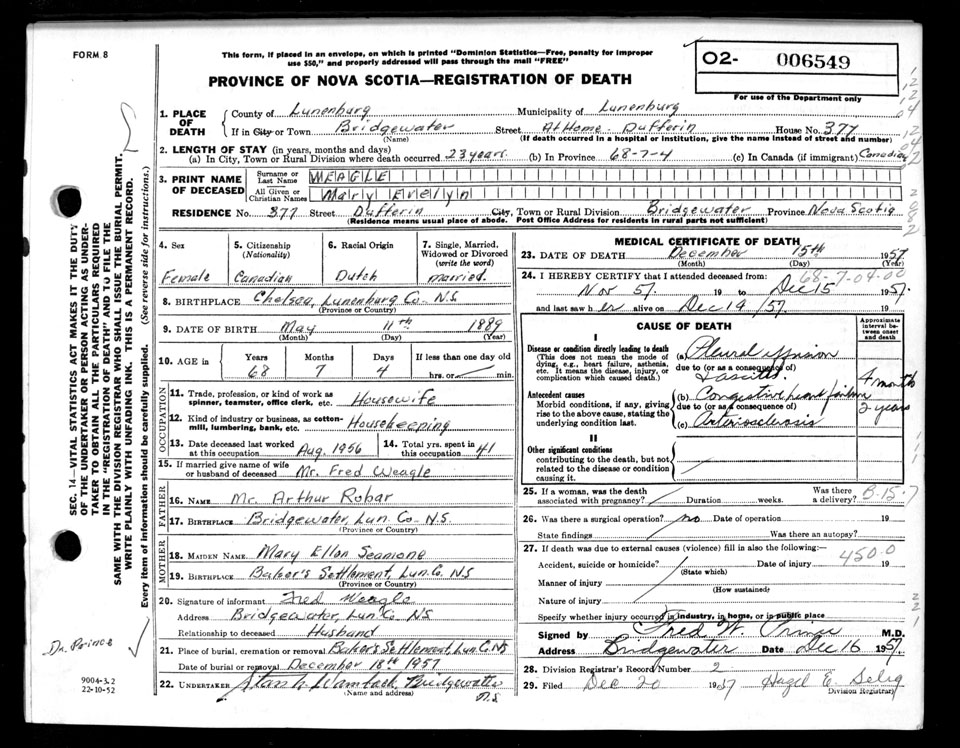 FORM 8
This form, if placed in an envelope, on which is printed "Dominion Statistics—Free, penalty for improper
use $50," and properly addressed will pass through the mail "FREE"
PROVINCE OF NOVA SCOTIA—REGISTRATION OF DEATH
O2- 006549
For use of the Department only
1. PLACE OF DEATH { County of Lunenburg Municipality of Lunenburg
If in City or Town Bridgewater Street At Home - Dufferin House No. 377
(Name) (If death occurred in a hospital or institution, give the name instead of street and number)
2. LENGTH OF STAY (in years, months and days)
(a) In City, Town or Rural Division where death occurred 23 years (b) In Province 68-7-4 (c) In Canada (if immigrant) Canadian
3. PRINT NAME OF DECEASED { Surname or Last Name WEAGLE
All Given or Christian Names Mary Evelyn
RESIDENCE No. 377 Street Dufferin City, Town or Rural Division Bridgewater Province Nova Scotia
(Residence means usual place of abode. Post Office Address for residents in rural parts not sufficient)
4. Sex Female
5. Citizenship (Nationality) Canadian
6. Racial Origin Dutch
7. Single, Married, Widowed or Divorced (write the word) married.
8. BIRTHPLACE Chelsea, Lunenburg Co. N.S
(Province or Country)
9. DATE OF BIRTH May 11th 1889
(Month) (Day) (Year)
10. AGE in { Years 68 Months 7 Days 4 If less than one day old hrs. or min.
OCCUPATION
11. Trade, profession, or kind of work as spinner, teamster, office clerk, etc. Housewife
12. Kind of industry or business, as cotton-mill, lumbering, bank, etc. Housekeeping
13. Date deceased last worked at this occupation Aug. 1956 14. Total yrs. spent in this occupation 41
15. If married give name of wife or husband of deceased Mr. Fred Weagle
FATHER
16. NAME Mr. Arthur Robar
17. BIRTHPLACE Bridgewater, Lun. Co. N.S.
(Province or Country)
MOTHER
18. MAIDEN NAME Mary Ellen Seamone
19. BIRTHPLACE Baker's Settlement, Lun. Co. NS
(Province or Country)
20. Signature of informant Fred Weagle
Address Bridgewater, Lun. Co. N.S
Relationship to deceased Husband
21. Place of burial, cremation or removal Baker's Settlement, Lun. Co. NS
Date of burial or removal December 18th 1957
22. UNDERTAKER Bridgewater
(Name and address) N.S.
MEDICAL CERTIFICATE OF DEATH
23. DATE OF DEATH December 15th 1957
(Month) (Day) (Year)
24. I HEREBY CERTIFY that I attended deceased from: 68-7-04-00
Nov 57 19 to Dec 15 1957
and last saw her alive on Dec 14 /57. 19
CAUSE OF DEATH
Approximate interval between onset and death
I
Disease or condition directly leading to death
(This does not mean the mode of dying, e.g., heart failure, asthenia, etc. It means the disease, injury, or complication which caused death.)
(a) Pleural effusion
due to (or as a consequence of)
& ascites. 4 months
Antecedent causes
Morbid conditions, if any, giving rise to the above cause, stating the underlying condition last.
(b) Congestive heart failure
due to (or as a consequence of) 2 years
(c) Arteriosclerosis
II
Other significant conditions
contributing to the death, but not related to the disease or condition causing it.
25. If a woman, was the death associated with pregnancy? Duration weeks. Was there a delivery? B-15-7
26. Was there a surgical operation? no Date of operation 19
State findings Was there an autopsy?
27. If death was due to external causes (violence) fill in also the following:— 450-0
Accident, suicide or homicide? Date of injury 19
(State which)
Manner of injury
(How sustained)
Nature of injury
Specify whether injury occurred in industry, in home, or in public place
Signed by Fred W. Prince M.D.
Address Bridgewater Date Dec 16 1957.
28. Division Registrar's Record Number 2
29. Filed Dec 20 1957 Hazel E. Selig
Division Registrar
SEC. 14—VITAL STATISTICS ACT MAKES IT THE DUTY
OF THE UNDERTAKER OR PERSON ACTING AS UNDER-
TAKER TO OBTAIN ALL THE PARTICULARS REQUIRED
IN THE "REGISTRATION OF DEATH" AND TO FILE THE
SAME WITH THE DIVISION REGISTRAR WHO SHALL ISSUE THE BURIAL PERMIT.
WRITE PLAINLY WITH UNFADING INK. THIS IS A PERMANENT RECORD.
Every item of information should be carefully supplied. (See reverse side for instructions.)
Dr. Prince
9004-3.2
22-10-52